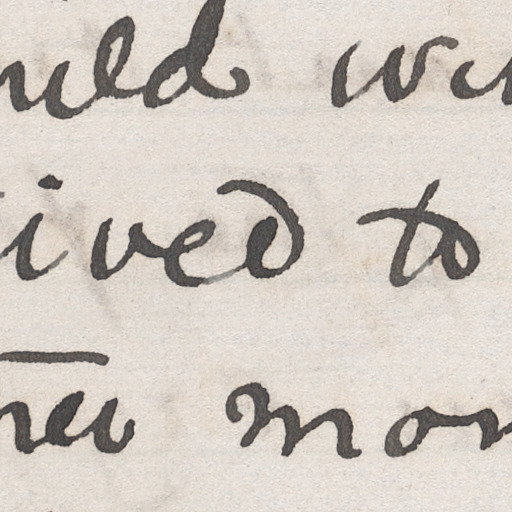 uld wi
ived to
her mon